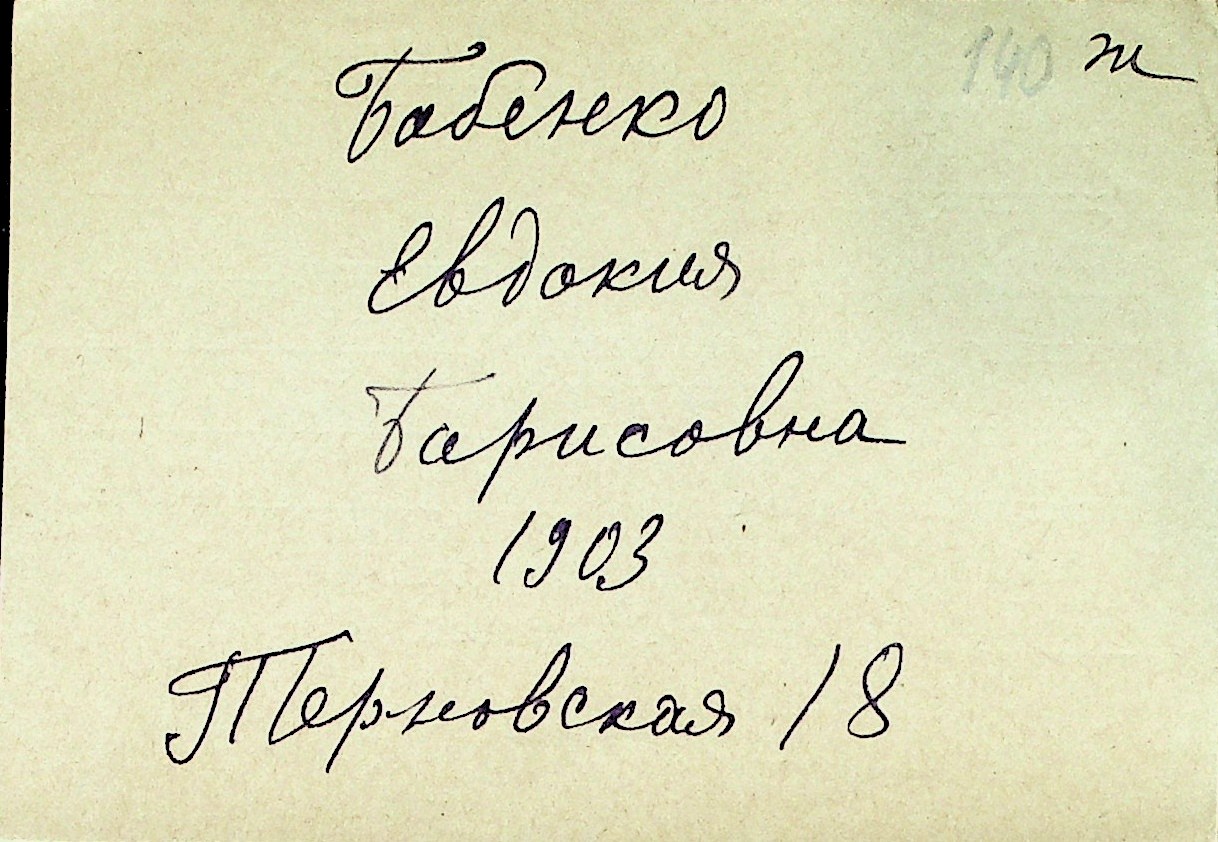 140 ж
Бабенко
Евдокия
Барисовна
1903
Терновская 18